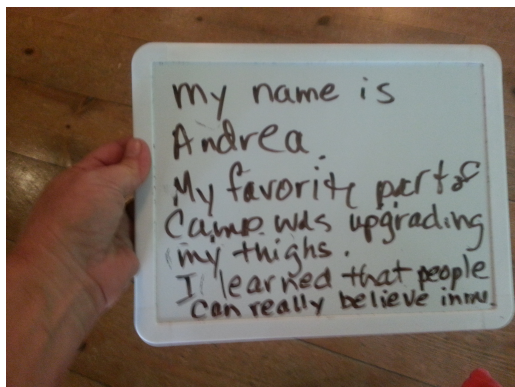 My name is
Andrea.
My favorite part of
Camp was upgrading
my thighs.
I learned that people
can really believe in me.